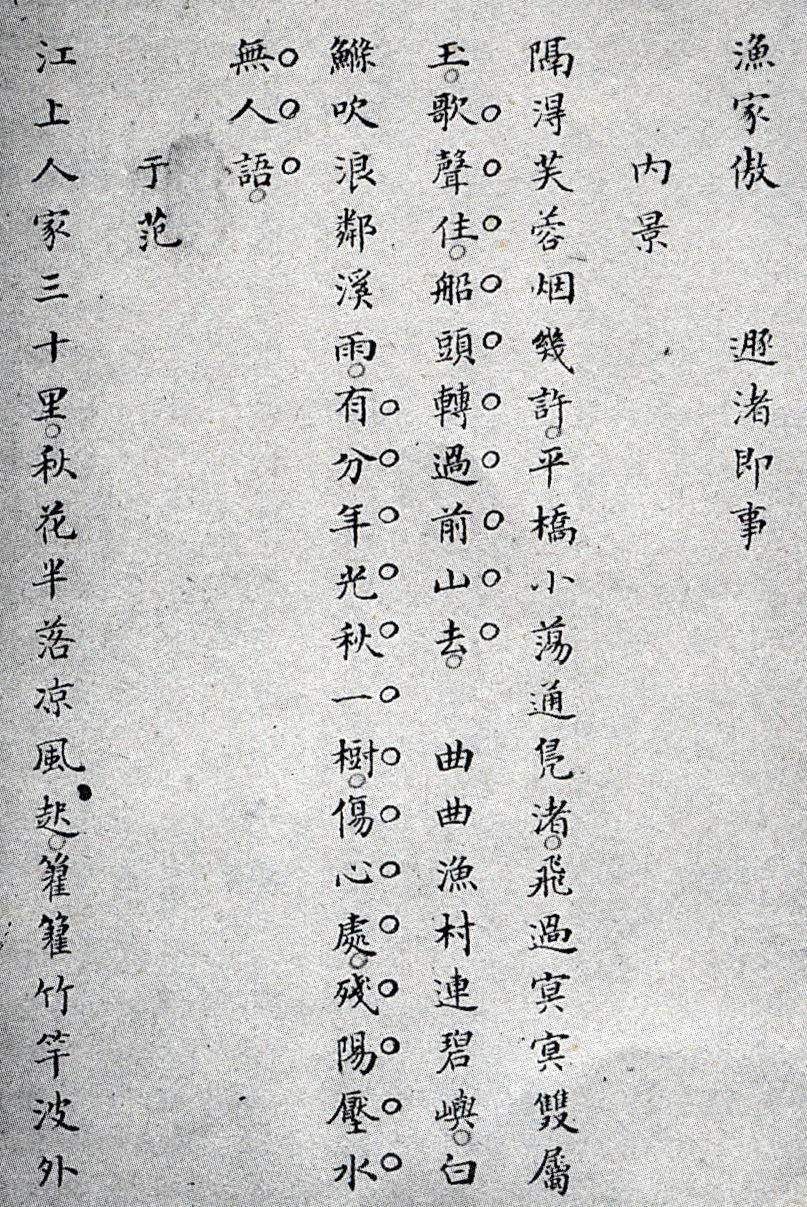 漁家傲　遯渚即事
内景
隔淂芙蓉烟幾許。平橋小蕩通鳧渚。飛過㝠㝠雙屬
玉。歌聲住。船頭轉過前山去。　曲曲漁村連碧嶼。白
鰷吹浪鄰溪雨。有分年光秋一樹。傷心處。殘陽壓水
無人語。
于范
江上人家三十里。秋花半落凉風起。籊籊竹竿波外